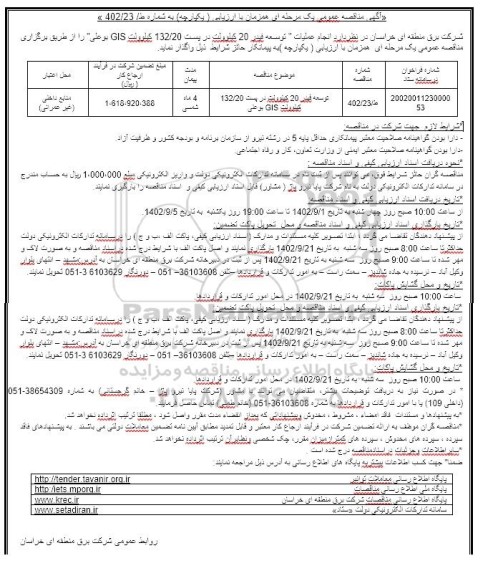 «آگهی مناقصه عمومی یک مرحله ای همزمان با ارزیابی ( یکپارچه) به شماره ط/ 402/23 »
شرکت برق منطقه ای خراسان در نظردارد انجام عملیات " توسعه فیدر 20 کیلوولت در پست 132/20 کیلوولت GIS بوعلی" را از طریق برگزاری
مناقصه عمومی یک مرحله ای همزمان با ارزیابی ( یکپارچه )به پیمانکار حائز شرایط ذیل واگذار نماید.
شماره فراخوان درسامانه ستاد
شماره مناقصه
موضوع مناقصه
مدت پیمان
مبلغ تضمین شرکت در فرآیند ارجاع کار (ریال)
محل اعتبار
2002001123000053
ط/402/23
توسعه فیدر 20 کیلوولت در پست 132/20 کیلوولت GIS بوعلی
4 ماه شمسی
1-618-920-388
منابع داخلی (غیر عمرانی)
*شرایط لازم جهت شرکت در مناقصه:
- دارا بودن گواهینامه صلاحیت معتبر پیمانکاری حداقل پایه 5 در رشته نیرو از سازمان برنامه و بودجه کشور و ظرفیت آزاد.
-دارا بودن گواهینامه صلاحیت معتبر ایمنی از وزارت تعاون، کار و رفاه اجتماعی.
*نحوه دریافت اسناد ارزیابی کیفی و اسناد مناقصه :
مناقصه گران حائز شرایط فوق، می توانند پس از ثبت نام در سامانه تدارکات الکترونیکی دولت و واریز الکترونیکی مبلغ 1،000،000 ریال به حساب مندرج
در سامانه تدارکات الکترونیکی دولت به نام شرکت پایا نیرو پاژ ( مشاور) فایل اسناد ارزیابی کیفی و اسناد مناقصه را بارگیری نمایند.
*تاریخ دریافت اسناد ارزیابی کیفی و اسناد مناقصه:
از ساعت 10:00 صبح روز چهار شنبه به تاریخ 1402/9/1 تا ساعت 19:00 روز یکشنبه به تاریخ 1402/9/5
*تاریخ بارگذاری اسناد ارزیابی کیفی و اسناد مناقصه و محل تحویل پاکت تضمین:
از پیشنهاد دهندگان تقاضا می گردد ، ابتدا تصویر کلیه مستندات و مدارک (اسناد ارزیابی کیفی، پاکت الف ،ب و ج ) را در سامانه تدارکات الکترونیکی دولت
حداکثرتا ساعت 8:00 صبح روز سه شنبه به تاریخ 1402/9/21 بارگذاری نمایند و اصل پاکت الف با شرایط درج شده در اسناد مناقصه و به صورت لاک و
مهر شده تا ساعت 9:00 صبح روز سه شنبه به تاریخ 1402/9/21 پس از ثبت در دبیرخانه شرکت برق منطقه ای خراسان به آدرس:مشهد – انتهای بلوار
وکیل آباد – نرسیده به جاده شاندیز – سمت راست – به امور تدارکات و قراردادها –تلفن 36103608– 051 – دورنگار 6103629 3-051 تحویل نمایند.
*تاریخ و محل گشایش پاکات:
ساعت 10:00 صبح روز سه شنبه به تاریخ 1402/9/21 در محل امور تدارکات و قراردادها
*تاریخ بارگذاری اسناد ارزیابی کیفی و اسناد مناقصه و محل تحویل پاکت تضمین:
از پیشنهاد دهندگان تقاضا می گردد ، ابتدا تصویر کلیه مستندات و مدارک (اسناد ارزیابی کیفی، پاکت الف ،ب و ج ) را در سامانه تدارکات الکترونیکی دولت
حداکثرتا ساعت 8:00 صبح روز سه شنبه به تاریخ 1402/9/21 بارگذاری نمایند و اصل پاکت الف با شرایط درج شده در اسناد مناقصه و به صورت لاک و
مهر شده تا ساعت 9:00 صبح روز سه شنبه به تاریخ 1402/9/21 پس از ثبت در دبیرخانه شرکت برق منطقه ای خراسان به آدرس:مشهد – انتهای بلوار
وکیل آباد – نرسیده به جاده شاندیز – سمت راست – به امور تدارکات و قراردادها –تلفن 36103608– 051 – دورنگار 6103629 3-051 تحویل نمایند.
*تاریخ و محل گشایش پاکات:
ساعت 10:00 صبح روز سه شنبه به تاریخ 1402/9/21 در محل امور تدارکات و قراردادها
* در صورت نیاز به دریافت توضیحات بیشتر، متقاضیان می توانند با مشاور (شرکت پایا نیرو پاژ – خانم گرجستانی) به شماره 38654309-051
(داخلی 109) یا با امور تدارکات و قراردادها به شماره 36103608-051 تماس حاصل فرمایند.
*به پیشنهادها و مستندات فاقد امضاء ، مشروط ، مخدوش وپیشنهاداتی که بعداز انقضاء مدت مقرر واصل شود ، مطلقا ترتیب اثرداده نخواهد شد.
*مناقصه گران موظف به ارائه تضمین شرکت در فرآیند ارجاع کار معتبر و قابل تمدید مطابق آیین نامه تضمین معاملات دولتی می باشند . به پیشنهادهای فاقد
سپرده ، سپرده های مخدوش ، سپرده های کمترازمیزان مقرر، چک شخصی ونظایرآن ترتیب اثرداده نخواهد شد.
*سایر اطلاعات وجزئیات دراسنادمناقصه درج شده است .
ضمنا" جهت کسب اطلاعات بیشتر به پایگاه های اطلاع رسانی به آدرس ذیل مراجعه نمایند:
پایگاه اطلاع رسانی معاملات توانیر http://tender.tavanir.org.ir
پایگاه ملی اطلاع رسانی مناقصات http://iets.mporg.ir
پایگاه اطلاع رسانی مناقصات شرکت برق منطقه ای خراسان www.krec.ir
سامانه تدارکات الکترونیکی دولت «ستاد» www.setadiran.ir
روابط عمومی شرکت برق منطقه ای خراسان